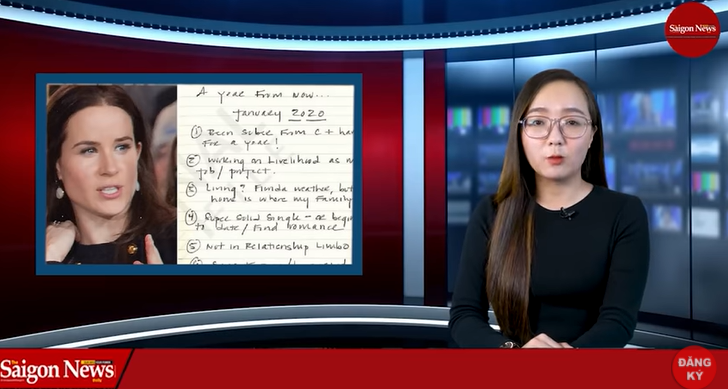 Saigon News
A Year From Now...
January 2020
① Been sober From C + ha
For a year!
② Working on Livelihood as m
job / project.
③ Living? Florida weather, but
home is where my Family
④ Super Solid Single - or begin
to date / Find romance
⑤ Not in Relationship Limbo
The
Saigon News
ĐĂNG
KÝ